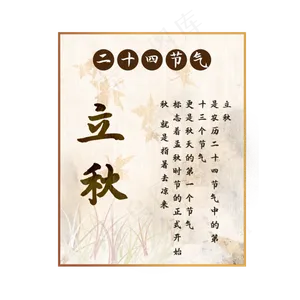 二十四节气
立秋
立秋
是农历二十四节气中的第
十三个节气
更是秋天的第一个节气
标志着孟秋时节的正式开始
秋 就是指暑去凉来